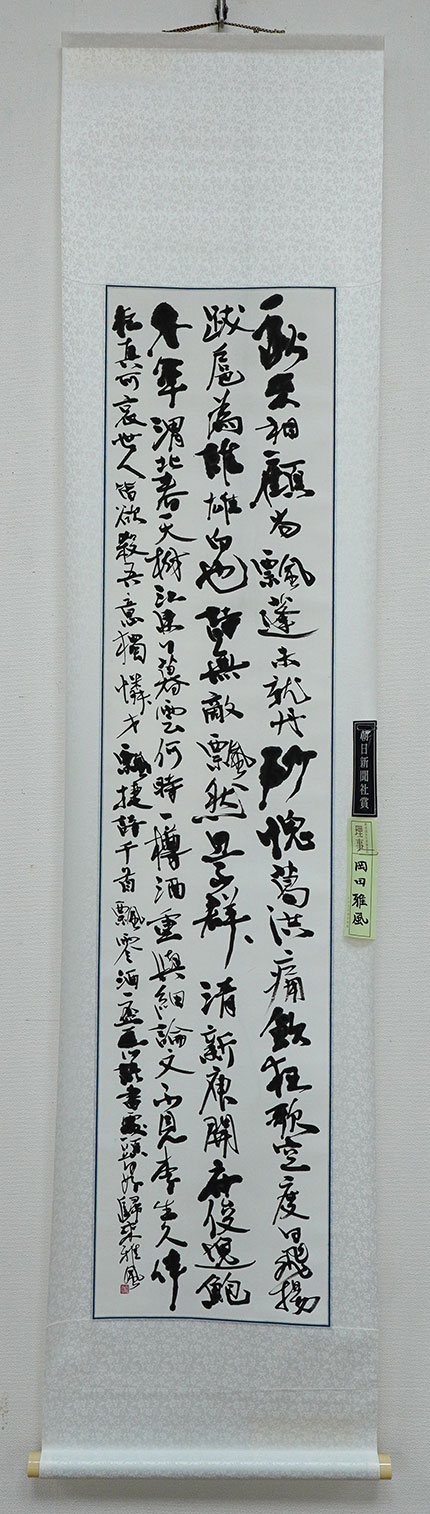 秋来相顧尚飄蓬未就丹砂愧葛洪痛飲狂歌空度日飛揚
跋扈為誰雄白也詩無敵飄然思不群清新庾開府俊逸鮑
参軍渭北春天樹江東日暮雲何時一樽酒重與細論文不見李生久佯
狂真可哀世人皆欲殺吾意獨憐才敏捷詩千首飄零酒一盃匡山讀書處頭白好歸来雅風
朝日新聞社賞
理事
岡田雅風